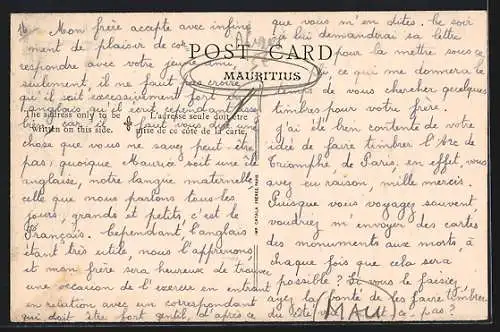 Mon frère accepte avec infini
ment de plaisir de cor
respondre avec votre jeune ami,
seulement, il ne faut pas croire
qu'il soit excessivement fort en
anglais qu'il écrit cependant assez
bien, car il faut vous dire une
chose que vous ne savez peut-être
pas: quoique Maurice soit une île
anglaise, notre langue maternelle
celle que nous parlons tous les
jours, grands et petits, c'est le
Français. Cependant l'anglais
étant très utile, nous l'apprenons,
et mon frère sera heureux de trouver
une occasion de l'exercer en entrant
en relation avec un correspondant
qui doit être fort gentil, d'après ce
POST CARD
MAURITIUS
The address only to be
Written on this side.
L'adresse seule doit être
mise de ce côté de la carte.
IMP. CATALA FRÈRES, PARIS
que vous m'en dites. Ce soir
je lui demanderai sa lettre
pour la mettre sous ce
pli, ce qui me donnera le
temps de vous chercher quelques
timbres pour votre frère.
J'ai été bien contente de votre
idée de faire timbrer l'Arc de
Triomphe, de Paris, en effet, vous
avez eu raison, mille mercis.
Puisque vous voyagez souvent
voudriez m'envoyer des cartes
des monuments aux morts, à
chaque fois que cela sera
possible? Si vous le faisiez
ayez la bonté de les faire timbrer
du côté vue
MAU